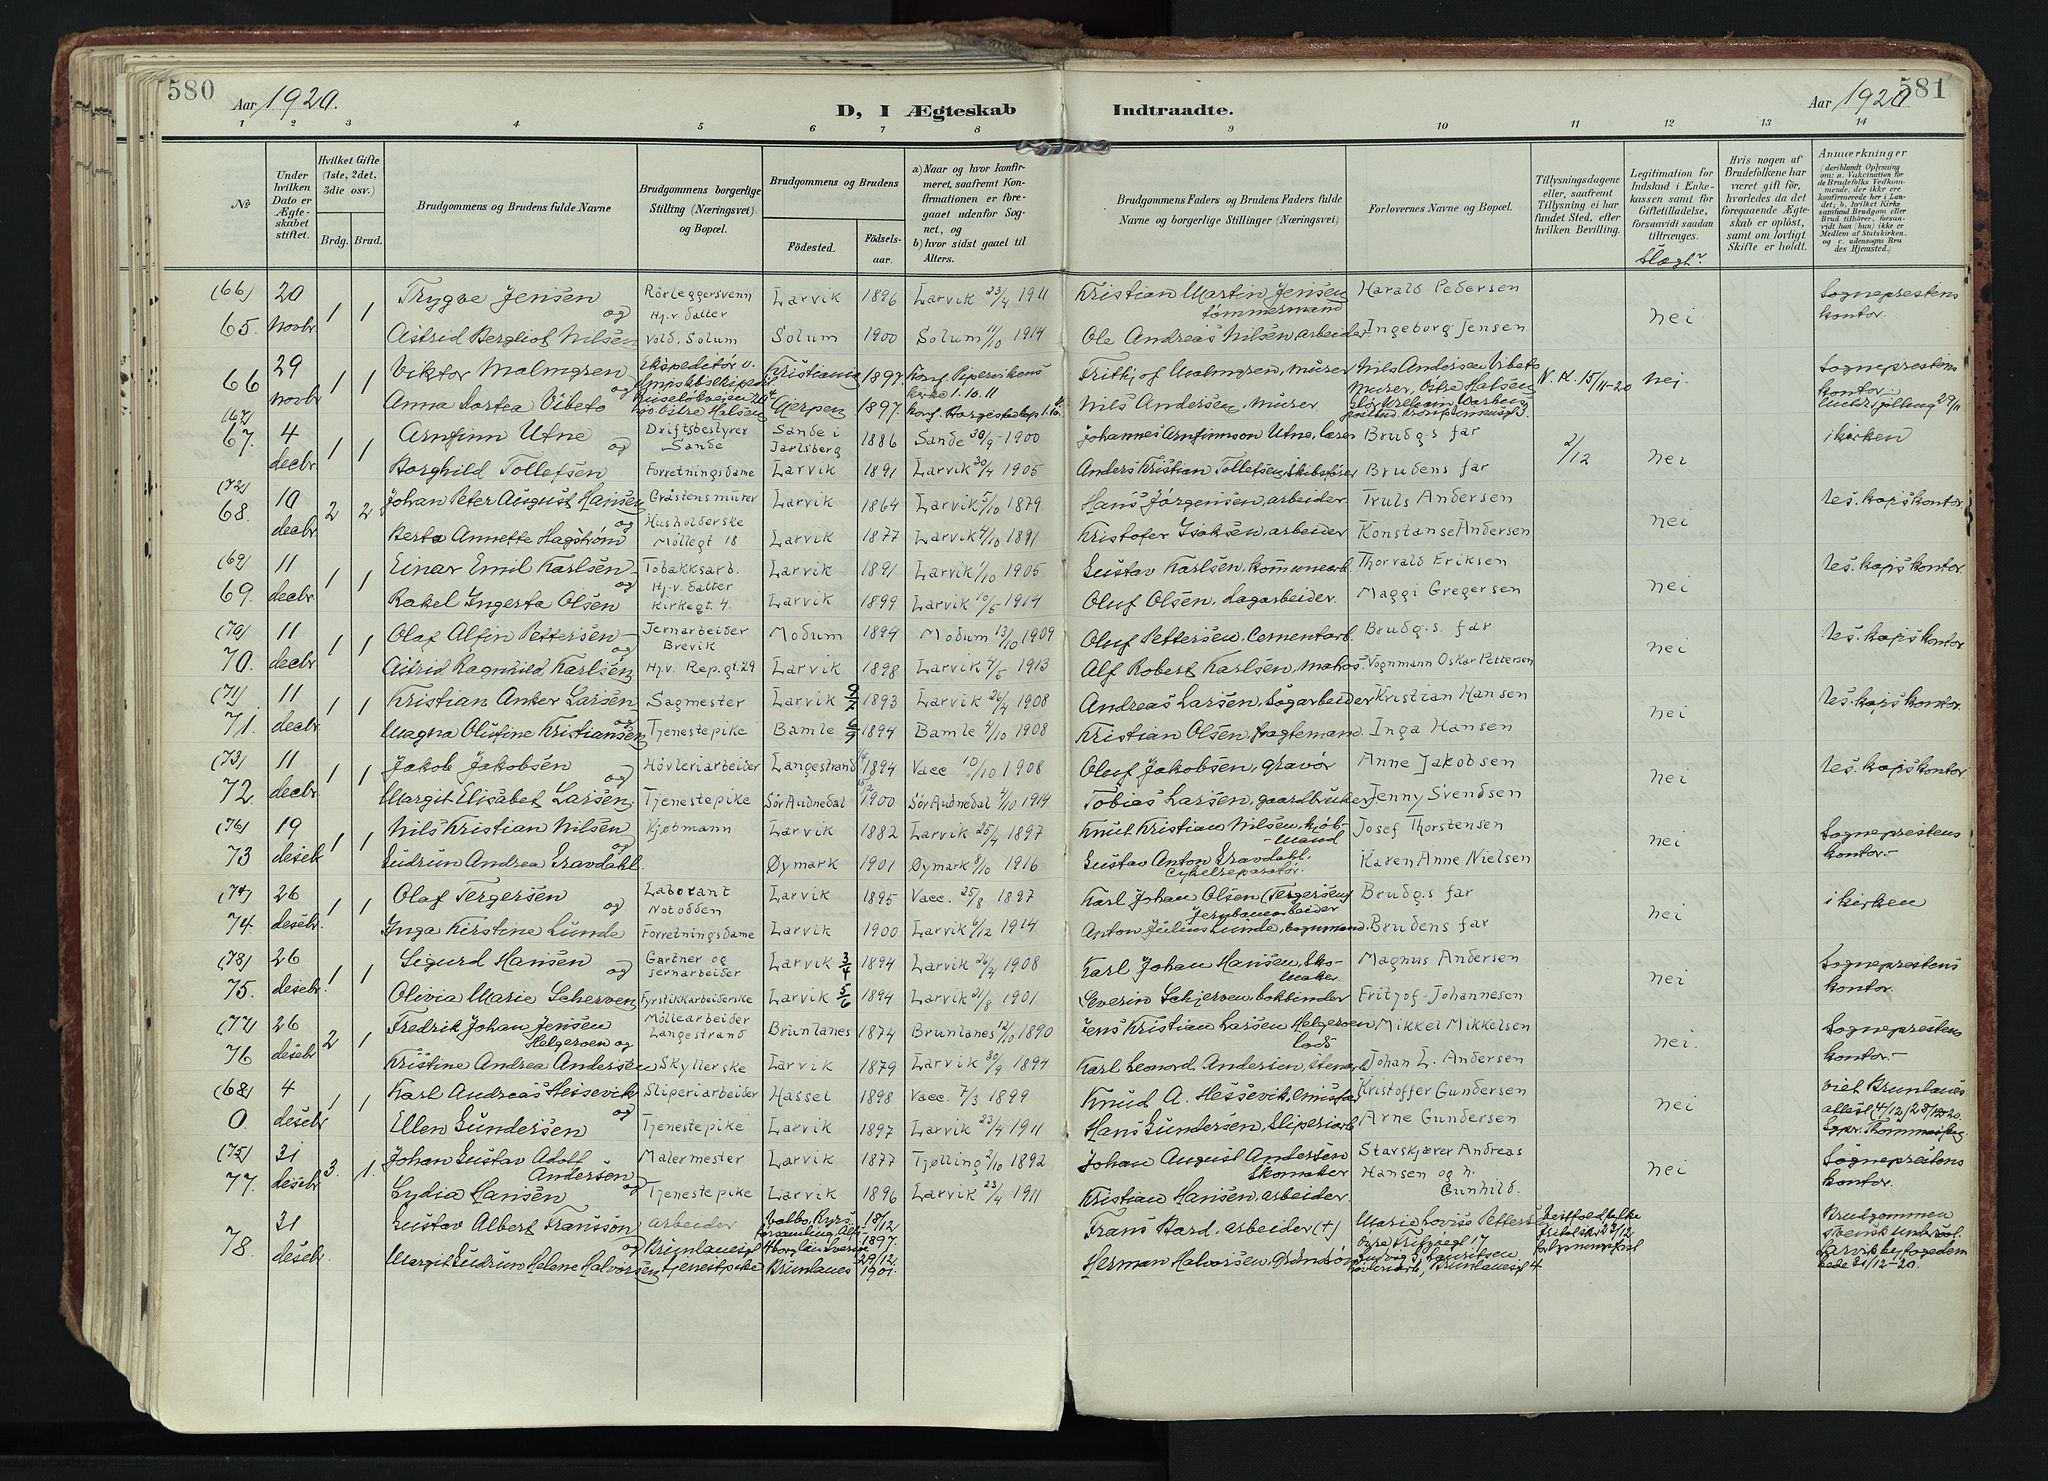 580
Aar 1920.
D, I Ægteskab
Indtraadte.
Aar 1920
581
1 2 3 4 5 6 7 8 9 10 11 12 13 14
No
Under hvilken Dato er Ægteskabet stiftet.
Hvilket Gifte (1ste, 2det, 3die osv.)
Brdg. Brud.
Brudgommens og Brudens fulde Navne
Brudgommens borgerlige Stilling (Næringsvei) og Bopæl.
Brudgommens og Brudens
Fødested.
Fødselsaar.
a) Naar og hvor konfirmeret, saafremt Konfirmationen er foregaaet udenfor Sognet, og
b) hvor sidst gaaet til Alters.
Brudgommens Faders og Brudens Faders fulde Navne og borgerlige Stillinger (Næringsvei)
Forlovernes Navne og Bopæl.
Tillysningsdagene eller, saafremt Tillysning ei har fundet Sted, efter hvilken Bevilling.
Legitimation for Indskud i Enkekassen samt for Giftetilladelse, forsaavidt saadan tiltrænges.
Slægt?
Hvis nogen af Brudefolkene har været gift før, hvorledes da det foregaaende Ægteskab er opløst, samt om lovligt Skifte er holdt.
Anmærkninger
(deriblandt Oplysning om: a. Vakcination for de Brudefolks Vedkommende, der ikke ere konfirmerede her i Landet; b. hvilket Kirkesamfund Brudgom eller Brud tilhører, forsaavidt han (hun) ikke er Medlem af Statskirken, og c. udensogns Brudes Hjemsted.)
(66) 20 1 1 Trygve Jensen og Rörleggersvenn Larvik 1896 Larvik 23/4 1911 Kristian Martin Jensen tømmermand Harald Pedersen Sogneprestens kontor.
65. novbr Astrid Bergliot Nilsen Hj.v. datter Vold, Solum Solum 1900 Solum 11/10 1914 Ole Andreas Nilsen, arbeider Ingeborg Jensen nei
66 29 novbr 1 1 Viktor Malmgren og Ekspeditør v. Kristiania 1897 Konf. Pipervikens kirke 1.10.11 Fritjof Malmgren, murer Nils Andersen Vibeto Murer, Østre Halsen 15/11-20 nei. Sogneprestens kontor.
Anna Dortea Vibeto Gjerpen 1897. Nils Andersen, murer
(67) 4 1 1 Arnfinn Utne og Driftsbestyrer Sande Sande i Jarlsberg 1886 Sande 30/9 1900 Johannes Arnfinnson Utne, lærer Brudg.s far 2/12 nei i kirken
67. decbr Borghild Tollefsen Forretningsdame Larvik 1891 Larvik 30/4 1905 Anders Kristian Tollefsen, Skibsfører Brudens far
(72) 10 2 2 Johan Peter August Hansen og Gråstensmurer Larvik 1864 Larvik 5/10 1879 Hans Jörgensen, arbeider Truls Andersen Res. kap.s kontor.
68. decbr. Berta Annette Hagstrøm Husholderske Möllegt 18 Larvik 1877 Larvik 4/10 1891 Kristofer Isaksen, arbeider Konstanse Andersen nei
(69) 11 1 1 Einar Emil Karlsen og Tobakksarb. Larvik 1891 Larvik 1/10 1905 Gustav Karlsen, kommunearb. Thorvald Eriksen Res. kap.s kontor.
69. decbr. Rakel Ingerta Olsen Hj.v. datter Kirkegt. 4. Larvik 1899 Larvik 10/5 1914 Oluf Olsen, Lagarbeider. Maggi Gregersen nei
(70) 11 1 1 Olaf Alfin Pettersen og Jernarbeider Brevik Modum 1894 Modum 13/10 1909 Oluf Pettersen, Cementarb. Brudg.s. far Res. kap.s kontor
70. decbr. Astrid Ragnhild Karlsen Hj.v. Rep.gt. 29 Larvik 1898 Larvik 4/5 1913 Alf Robert Karlsen, matros Vognmann Oskar Pettersen nei
(71) 11 1 1 Kristian Anker Larsen og Sagmester Larvik 9/2 1893 Larvik 26/4 1908 Andreas Larsen, Sagarbeider Kristian Hansen Res. kap.s kontor.
71. decbr. Magna Olufine Kristiansen Tjenestepike Bamle 6/9 1894 Bamle 4/10 1908 Kristian Olsen, fragtemand Inga Hansen nei
(73) 11 1 1 Jakob Jakobsen og Hövleriarbeider Langestrand 1894 Vacc 10/10 1908 Oluf Jakobsen, gravør Anne Jakobsen Res. kap.s kontor
72. decbr. Margit Elisabet Larsen. Tjenestepike Sör Audnedal 1900 Sör Audnedal 4/10 1914 Tobias Larsen, gaardbruker Jenny Svendsen nei
(76) 19 1 1 Nils Kristian Nilsen og Kjøbmann Larvik 1882 Larvik 25/4 1897 Knut Kristian Nilsen, kjøbmand Josef Thorstensen Sogneprestens kontor.-
73 desebr Gudrun Andrea Gravdahl. Øymark 1901 Øymark 8/10 1916 Gustav Anton Gravdahl. Cykelreparatør. Karen Anne Nielsen nei
(74) 26 1 1 Olaf Tergersen og Laborant Notodden Larvik 1895 Vacc. 25/8 1897 Karl Johan Olsen (Tergersen) Jernbanearbeider Brudg.s far i kirken
74. desebr. Inga Kirstine Lunde Forretningsdame Larvik 1900 Larvik 6/12 1914 Anton Julius Lunde, vognmand. Brudens far nei
(78) 26 1 1 Sigurd Hansen og Gartner og jernarbeider Larvik 3/4 1894 Larvik 26/4 1908 Karl Johan Hansen, Skomaker. Magnus Andersen Sogneprestens kontor.
75. desebr. Olivia Marie Scherven Fyrstikkarbeiderske Larvik 5/6 1894 Larvik 21/8 1901 Severin Schjerven, bokbinder Fritjof Johannesen nei
(77) 26 2 1 Fredrik Johan Jensen Helgeroen og Möllearbeider Langestrand Brunlanes 1874 Brunlanes 12/10 1890 Jens Kristian Larsen Helgeroen lods Mikkel Mikkelsen Sogneprestens kontor.-
76 desebr Kristine Andrea Andersen Skyllerske Larvik 1879 Larvik 30/9 1894 Karl Leonard Andersen, Johan L. Andersen nei.
(68) 4 1 1 Karl Andreas Hessevik og Sliperiarbeider Hassel 1898 Vacc. 7/3 1899 Knud A. Hessevik, Kristoffer Gundersen viet Brunlanes
0 desebr Ellen Gundersen Tjenestepike Larvik 1897 Larvik 23/4 1911 Hans Gundersen, Sliperiarb Arne Gundersen nei
(75) 31 3. 1. Johan Gustav Adolf Andersen og Malermester Larvik 1877 Tjølling 2/10 1892 Johan August Andersen Skomaker Starskjærer Andreas Hansen og h. Gunhild. nei Sogneprestens kontor.
77. desebr Lydia Hansen Tjenestepike Larvik 1896 Larvik 23/4 1911 Kristian Hansen, arbeider.
78. 31 desebr. Gustav Albert Fransson og arbeider 18/12 1897. Frans Bard, arbeider (+) Marie Lovise Petters Øvre Fritzøegt 17 Brudgommen svensk undersåt. Larvik byfogedembede 31/12-20.
Margit Gudrun Helene Halvorsen tjenestepike Brunlanes 29/12 1901. Herman Halvorsen, Ludvig S. Lauritsen, Brunlanesgt 4